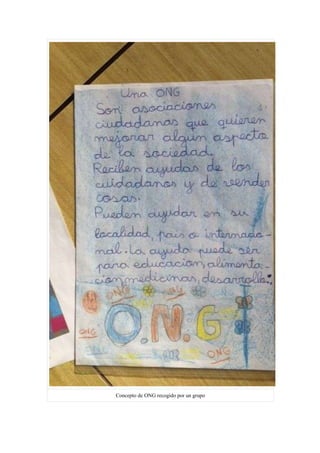 Una ONG
Son asociaciones
ciudadanas que quieren
mejorar algún aspecto
de la sociedad.
Reciben ayudas de los
cuidadanos y de vender
cosas.
Pueden ayudar en su
localidad, pais o internacio-
nal. La ayuda puede ser
para educacion, alimenta-
cion, medicinas, desarrollo...
ONG
ONG
O.N.G
ONG
ONG
Concepto de ONG recogido por un grupo